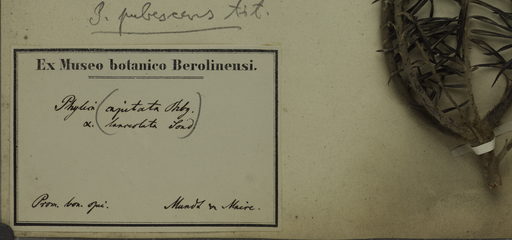 P. pubescens Ait.
Ex Museo botanico Berolinensi.
Phylica (capitata Thbg.
α. lanceolata Sond)
Prom. bon. spei. Mundt & Maire.